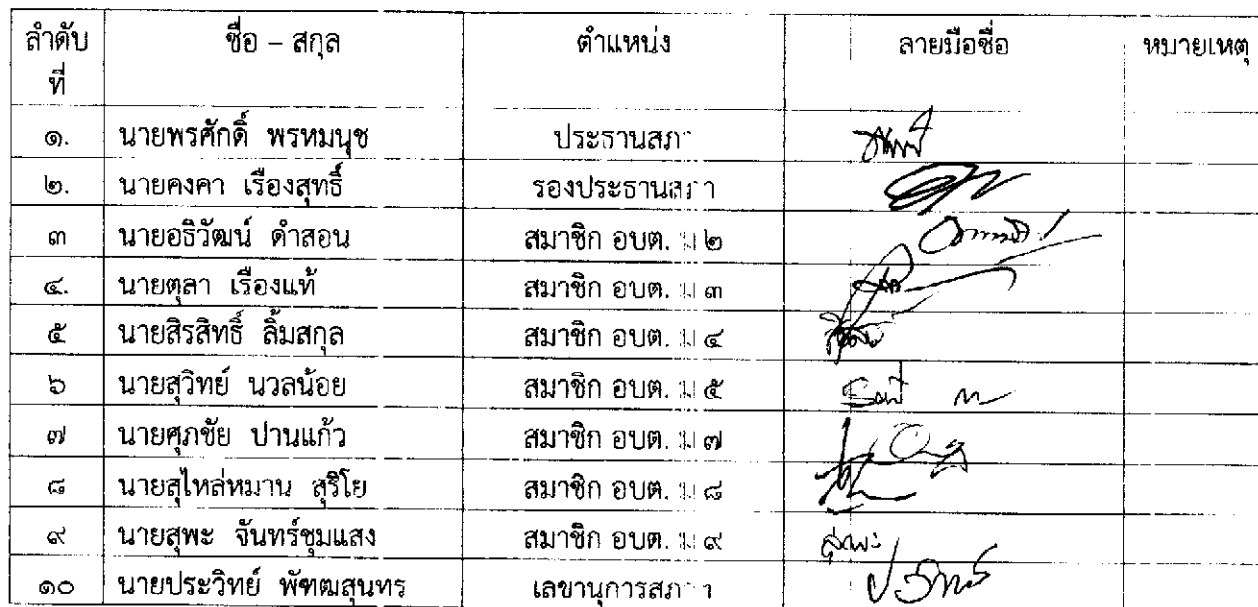 ลำดับ ชื่อ – สกุล ตำแหน่ง ลายมือชื่อ หมายเหตุ
ที่
๑. นายพรศักดิ์ พรหมนุช ประธานสภา
๒. นายคงคา เรืองสุทธิ์ รองประธานสภา
๓ นายอธิวัฒน์ ดำสอน สมาชิก อบต. ม ๒
๔. นายตุลา เรืองแท้ สมาชิก อบต. ม ๓
๕ นายสิรสิทธิ์ ลิ้มสกุล สมาชิก อบต. ม ๔
๖ นายสุวิทย์ นวลน้อย สมาชิก อบต. ม ๕
๗ นายศุภชัย ปานแก้ว สมาชิก อบต. ม ๗
๘ นายสุไหล่หมาน สุริโย สมาชิก อบต. ม ๘
๙ นายสุพะ จันทร์ชุมแสง สมาชิก อบต. ม ๙ สุพะ
๑๐ นายประวิทย์ พัฑฒสุนทร เลขานุการสภา